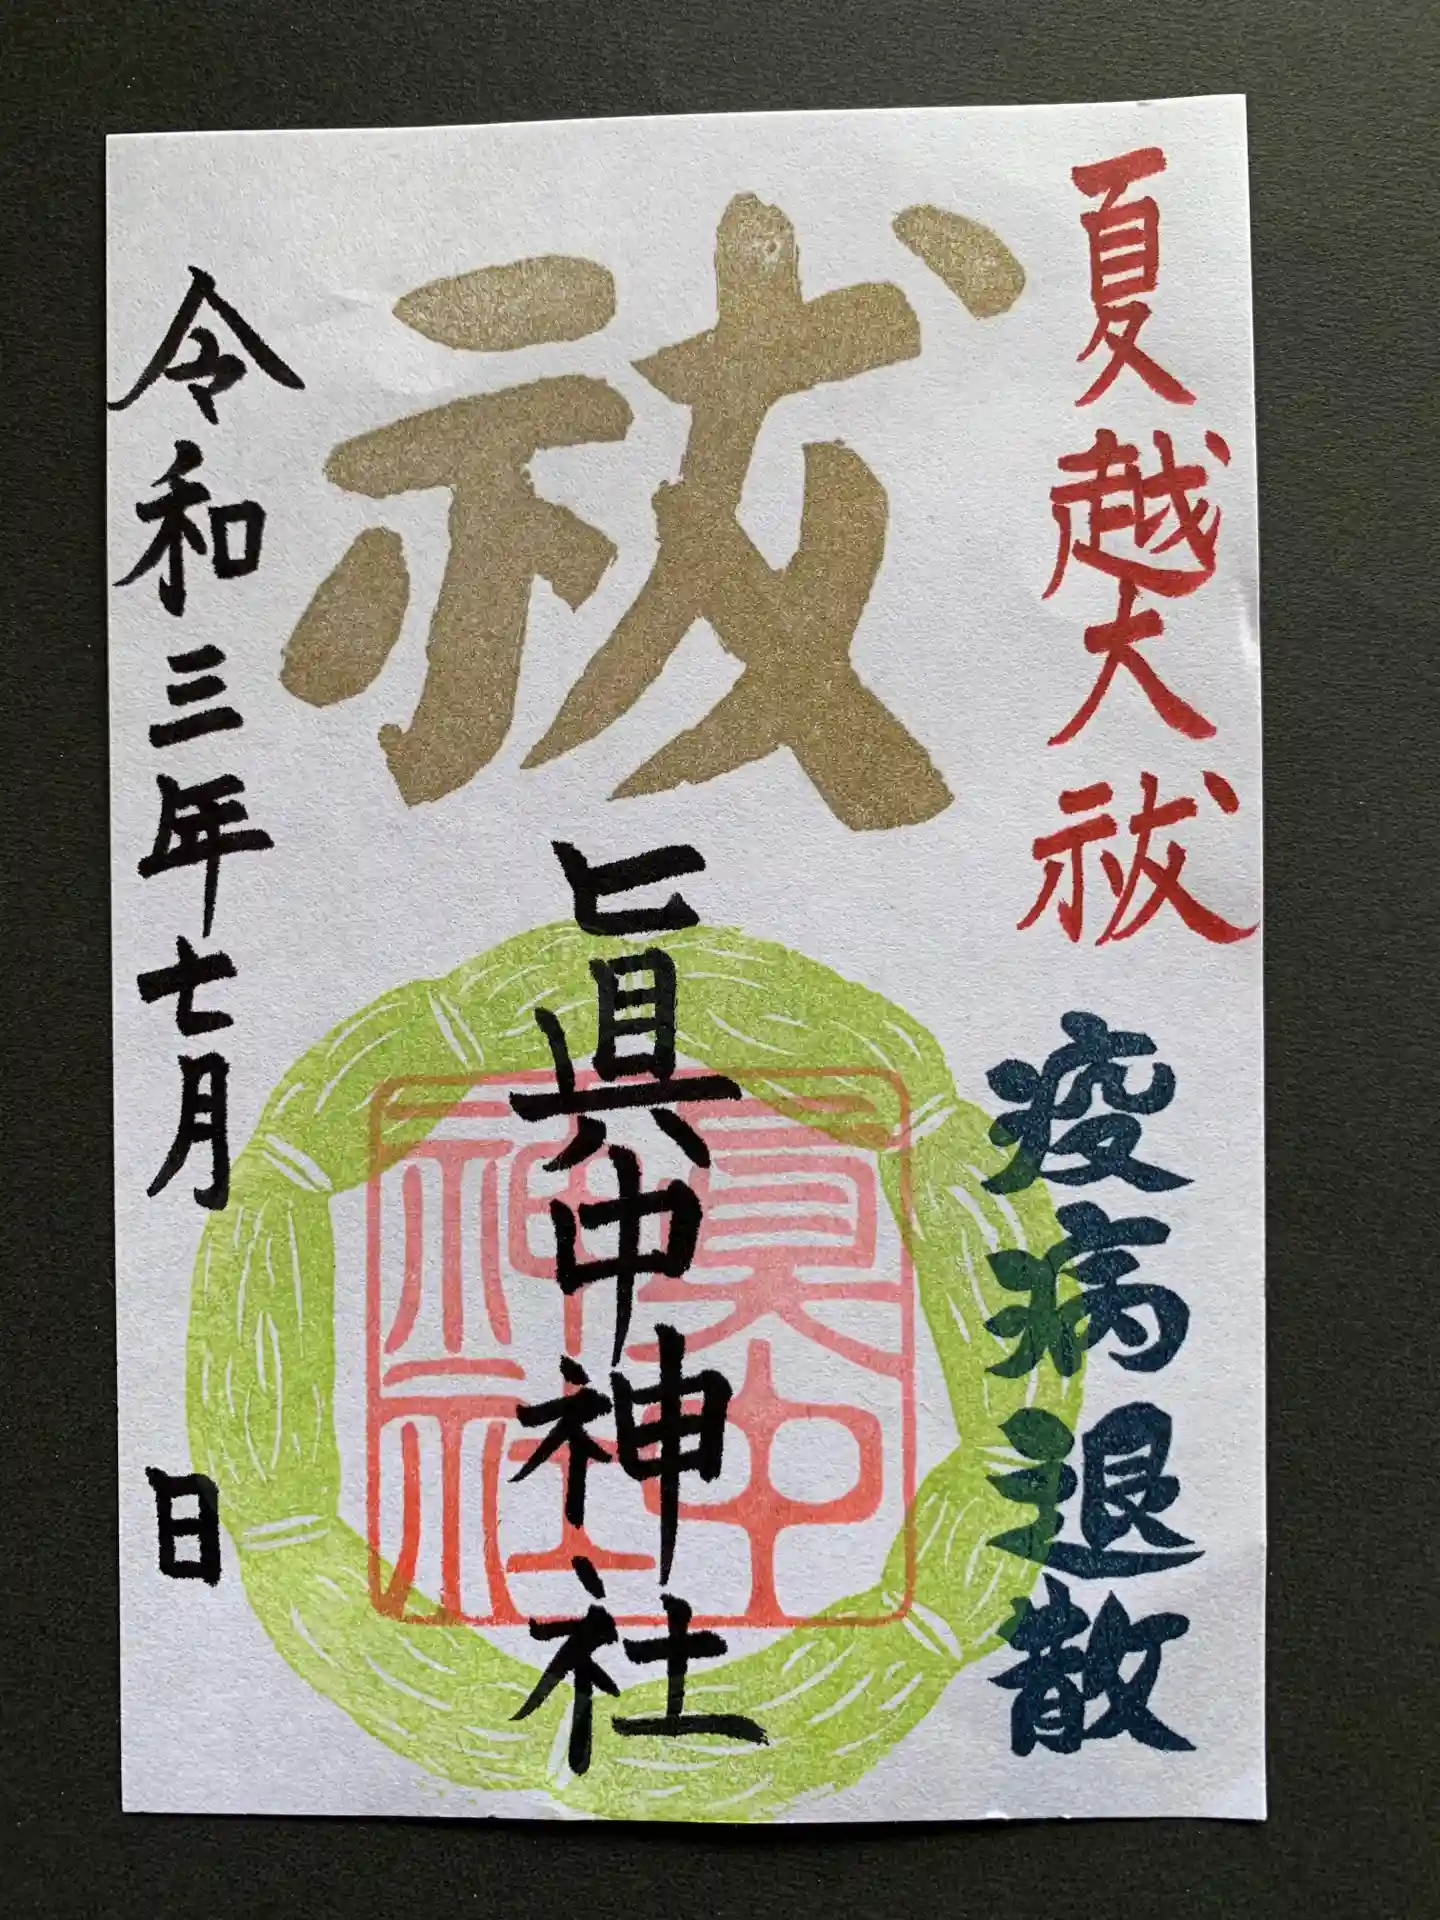 夏越大祓
疫病退散
祓
眞中神社
眞中
神社
令和三年七月 日